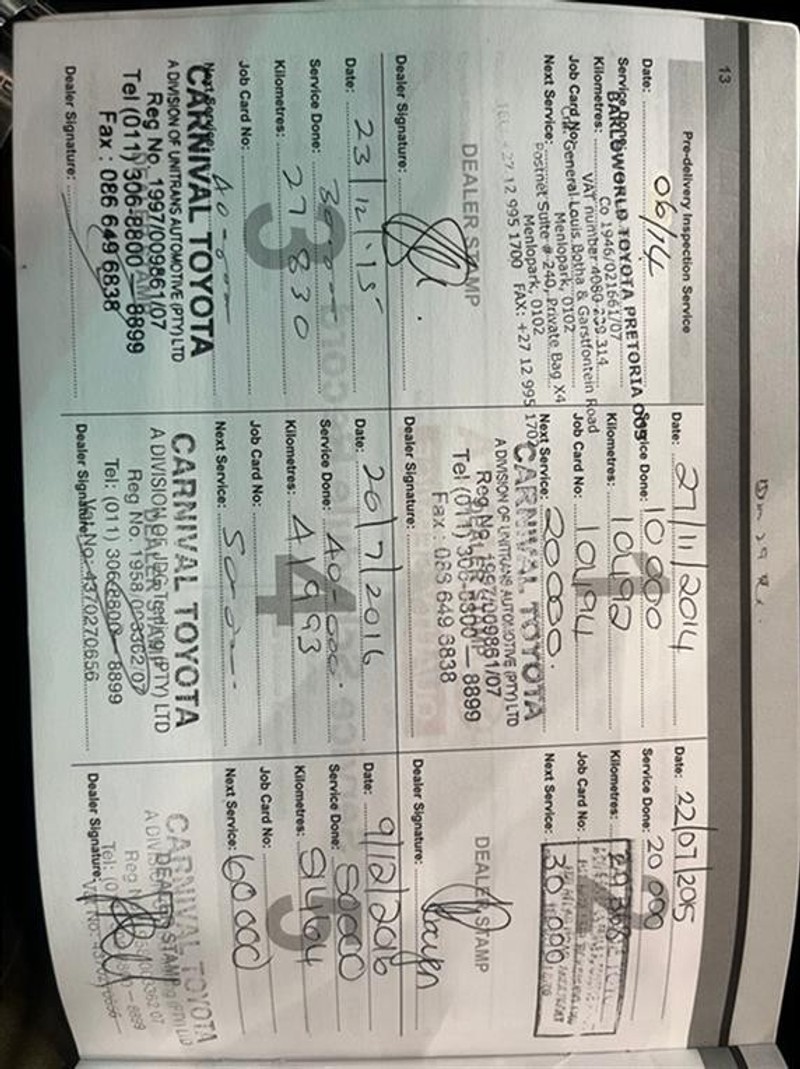 13
Pre-delivery Inspection Service
Date: 06/14
Service Done:
BARLOWORLD TOYOTA PRETORIA
Co 1946/021661/07
Kilometres:
VAT number 4080 239 314
Job Card No:
Cnr General Louis Botha & Garstfontein Road
Menlopark, 0102
Next Service:
Postnet Suite # 240, Private Bag X4
Menlopark, 0102
+27 12 995 1700 FAX: +27 12 995 1702
DEALER STAMP
Dealer Signature:
1
Date: 27/11/2014
Service Done: 10 000
Kilometres: 10492
Job Card No: 10494
Next Service: 20000.
CARNIVAL TOYOTA
A DIVISION OF UNITRANS AUTOMOTIVE (PTY) LTD
Reg No. 1997/009861/07
Tel (011) 306-8800 — 8899
Fax : 086 649 6838
Dealer Signature:
2
Date: 22/07/2015
Service Done: 20 000
Kilometres:
Job Card No:
Next Service: 30 000
DEALER STAMP
Dealer Signature:
3
Date: 23/12/15
Service Done:
Kilometres: 27830
Job Card No:
Next Service:
CARNIVAL TOYOTA
A DIVISION OF UNITRANS AUTOMOTIVE (PTY) LTD
Reg No. 1997/009861/07
Tel (011) 306-8800 — 8899
Fax : 086 649 6838
Dealer Signature:
4
Date: 26/7/2016
Service Done: 40-000.
Kilometres: 41993
Job Card No:
Next Service:
CARNIVAL TOYOTA
DEALER STAMP
A DIVISION OF JDG Trading (PTY) LTD
Reg No. 1958/003362/07
Tel: (011) 306-8800 — 8899
Dealer Signature:
Vat No: 4370270656
5
Date: 9/12/2016
Service Done: 50000
Kilometres: 51464
Job Card No:
Next Service: 60 000
CARNIVAL TOYOTA
DEALER STAMP
Dealer Signature: